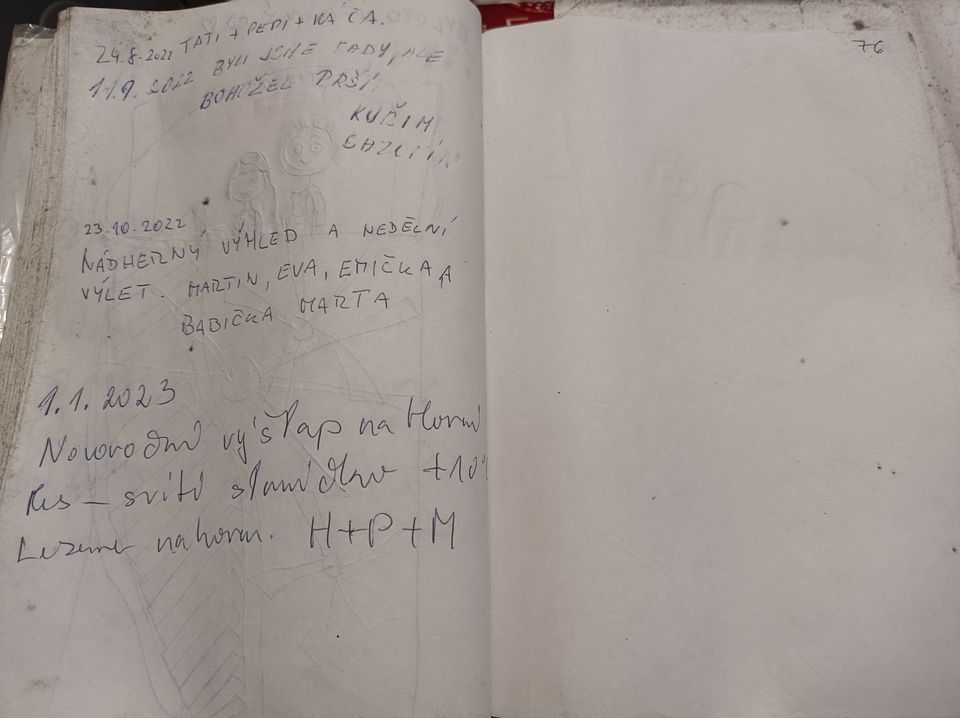 24.8.2022 TATI + PEPI + KÁČA.
11.9.2022 BYLI JSME TADY, ALE
BOHUŽEL PRŠÍ.
KUŘIM
23.10.2022
NÁDHERNÝ VÝHLED A NEDĚLNÍ
VÝLET. MARTIN, EVA, EMIČKA A
BABIČKA MARTA
1.1.2023
Novoroční výšlap na Horní
les – svítí sluníčko +10°
Lezeme nahoru. H+P+M
76